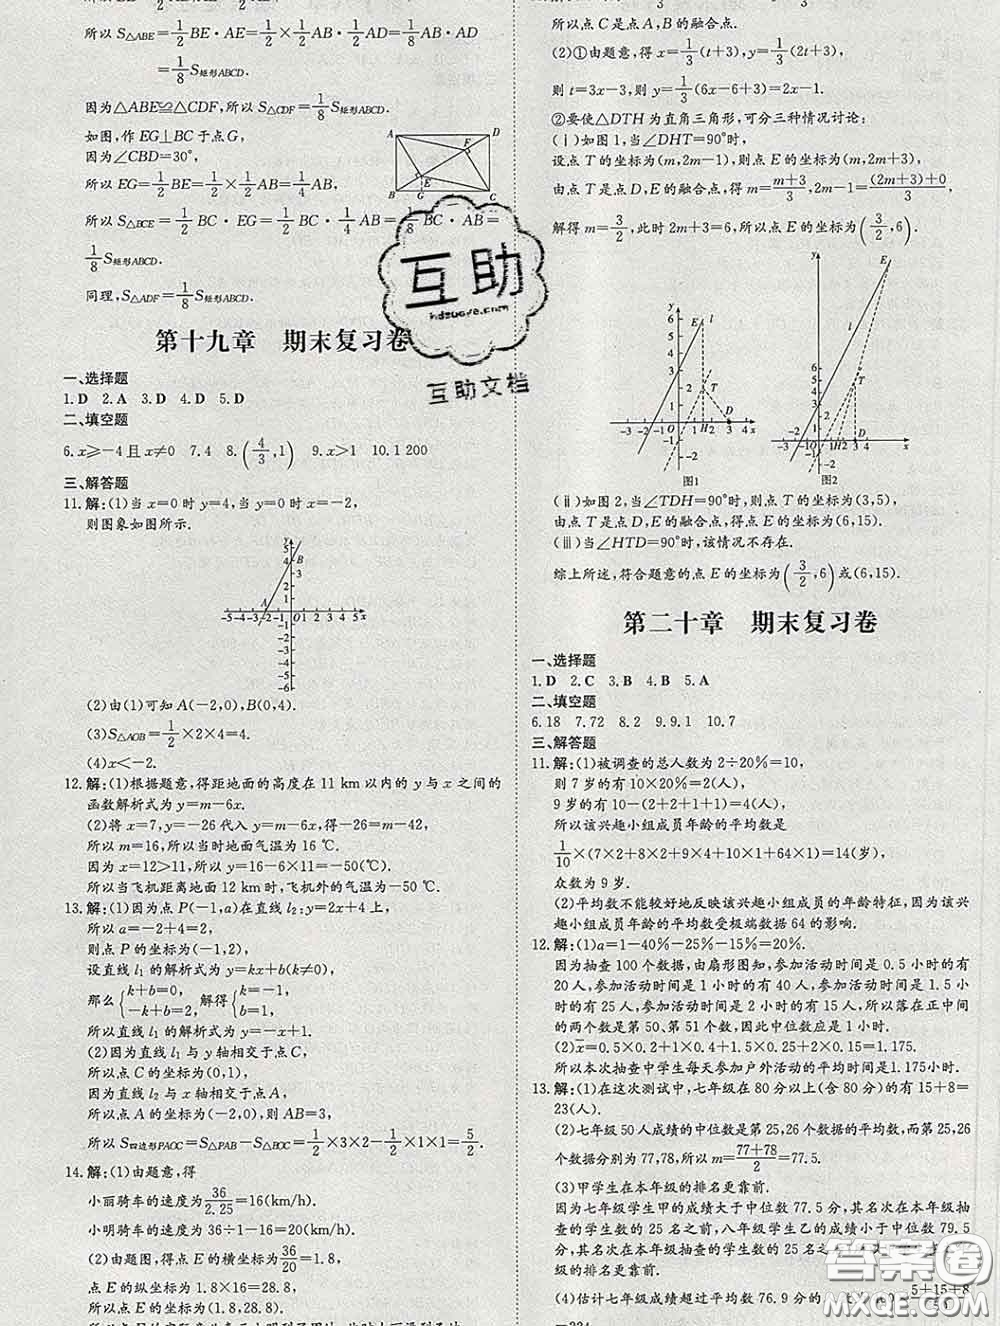 所以 S△ABE=1/2 BE·AE=1/2×1/2 AB·1/2 AD=1/8 AB·AD
=1/8 S矩形ABCD.
因为△ABE≌△CDF,所以 S△CDF=1/8 S矩形ABCD.
如图,作 EG⊥BC 于点 G,
因为∠CBD=30°,
所以 EG=1/2 BE=1/2×1/2 AB=1/4 AB,
所以 S△BCE=1/2 BC·EG=1/2 BC·1/4 AB=1/8 BC·AB=
1/8 S矩形ABCD.
同理,S△ADF=1/8 S矩形ABCD.
A D F E B G C
第十九章 期末复习卷
一、选择题
1.D 2.A 3.D 4.D 5.D
二、填空题
6.x≥-4且x≠0 7.4 8.(4/3,1) 9.x>1 10.1 200
三、解答题
11.解:(1)当 x=0 时 y=4,当 y=0 时 x=-2,
则图象如图所示.
(2)由(1)可知 A(-2,0),B(0,4).
(3)S△AOB=1/2×2×4=4.
(4)x<-2.
12.解:(1)根据题意,得距地面的高度在 11 km 以内的 y 与 x 之间的
函数解析式为 y=m-6x.
(2)将 x=7,y=-26 代入 y=m-6x,得-26=m-42,
所以 m=16,所以当时地面气温为 16 ℃.
因为 x=12>11,所以 y=16-6×11=-50(℃).
所以当飞机距离地面 12 km 时,飞机外的气温为-50 ℃.
13.解:(1)因为点 P(-1,a)在直线 l₂:y=2x+4 上,
所以 a=-2+4=2,
则点 P 的坐标为(-1,2),
设直线 l₁ 的解析式为 y=kx+b(k≠0),
那么{k+b=0, -k+b=2, 解得{k=-1, b=1.
所以直线 l₁ 的解析式为 y=-x+1.
(2)因为直线 l₁ 与 y 轴相交于点 C,
所以点 C 的坐标为(0,1),
因为直线 l₂ 与 x 轴相交于点 A,
所以点 A 的坐标为(-2,0),则 AB=3,
所以 S四边形PAOC=S△PAB-S△BOC=1/2×3×2-1/2×1×1=5/2.
14.解:(1)由题意,得
小丽骑车的速度为36/2.25=16(km/h),
小明骑车的速度为 36÷1-16=20(km/h).
(2)由题图,得点 E 的横坐标为36/20=1.8,
点 E 的纵坐标为 1.8×16=28.8,
所以点 E 的坐标为(1.8,28.8).
所以点 C 是点 A,B 的融合点.
(2)①由题意,得 x=1/3(t+3),y=1/3(2t+3),
则 t=3x-3,所以 y=1/3(6x-6+3)=2x-1.
②要使△DTH 为直角三角形,可分三种情况讨论:
(ⅰ)如图 1,当∠DHT=90°时,
设点 T 的坐标为(m,2m-1),则点 E 的坐标为(m,2m+3),
由点 T 是点 D,E 的融合点,得 m=m+3/3,2m-1=(2m+3)+0/3,
解得 m=3/2,此时 2m+3=6,所以点 E 的坐标为(3/2,6).
图1 图2
(ⅱ)如图 2,当∠TDH=90°时,则点 T 的坐标为(3,5),
由点 T 是点 D,E 的融合点,得点 E 的坐标为(6,15).
(ⅲ)当∠HTD=90°时,该情况不存在.
综上所述,符合题意的点 E 的坐标为(3/2,6)或(6,15).
第二十章 期末复习卷
一、选择题
1.D 2.C 3.B 4.B 5.A
二、填空题
6.18 7.72 8.2 9.9.1 10.7
三、解答题
11.解:(1)被调查的总人数为 2÷20%=10,
则 7 岁的有 10×20%=2(人),
9 岁的有 10-(2+2+1+1)=4(人),
所以该兴趣小组成员年龄的平均数是
1/10×(7×2+8×2+9×4+10×1+64×1)=14(岁),
众数为 9 岁.
(2)平均数不能较好地反映该兴趣小组成员的年龄特征,因为该兴
趣小组成员年龄的平均数受极端数据 64 的影响.
12.解:(1)a=1-40%-25%-15%=20%.
因为抽查 100 个数据,由扇形图知,参加活动时间是 0.5 小时的有
20 人,参加活动时间是 1 小时的有 40 人,参加活动时间是 1.5 小
时的有 25 人,参加活动时间是 2 小时的有 15 人,所以落在正中间
的两个数是第 50、第 51 个数,因此中位数应是 1 小时.
(2)x̄=0.5×0.2+1×0.4+1.5×0.25+2×0.15=1.175.
所以本次抽查中学生每天参加户外活动的平均时间是 1.175小时.
13.解:(1)在这次测试中,七年级在 80 分以上(含 80 分)的有 15+8=
23(人).
(2)七年级 50 人成绩的中位数是第 25,26 个数据的平均数,而第 25,26
个数据分别为 77,78,所以 m=77+78/2=77.5.
(3)甲学生在本年级的排名更靠前.
因为七年级学生甲的成绩大于中位数 77.5 分,其名次在本年级抽
查的学生数的 25 名之前,八年级学生乙的成绩小于中位数 79.5
分,其名次在本年级抽查的学生数的 25 名之
(4)估计七年级成绩超过平均数 76.9 分的
5+15+8
互助
hdzuoye.com
互助文档
答案圈
MXQE.COM